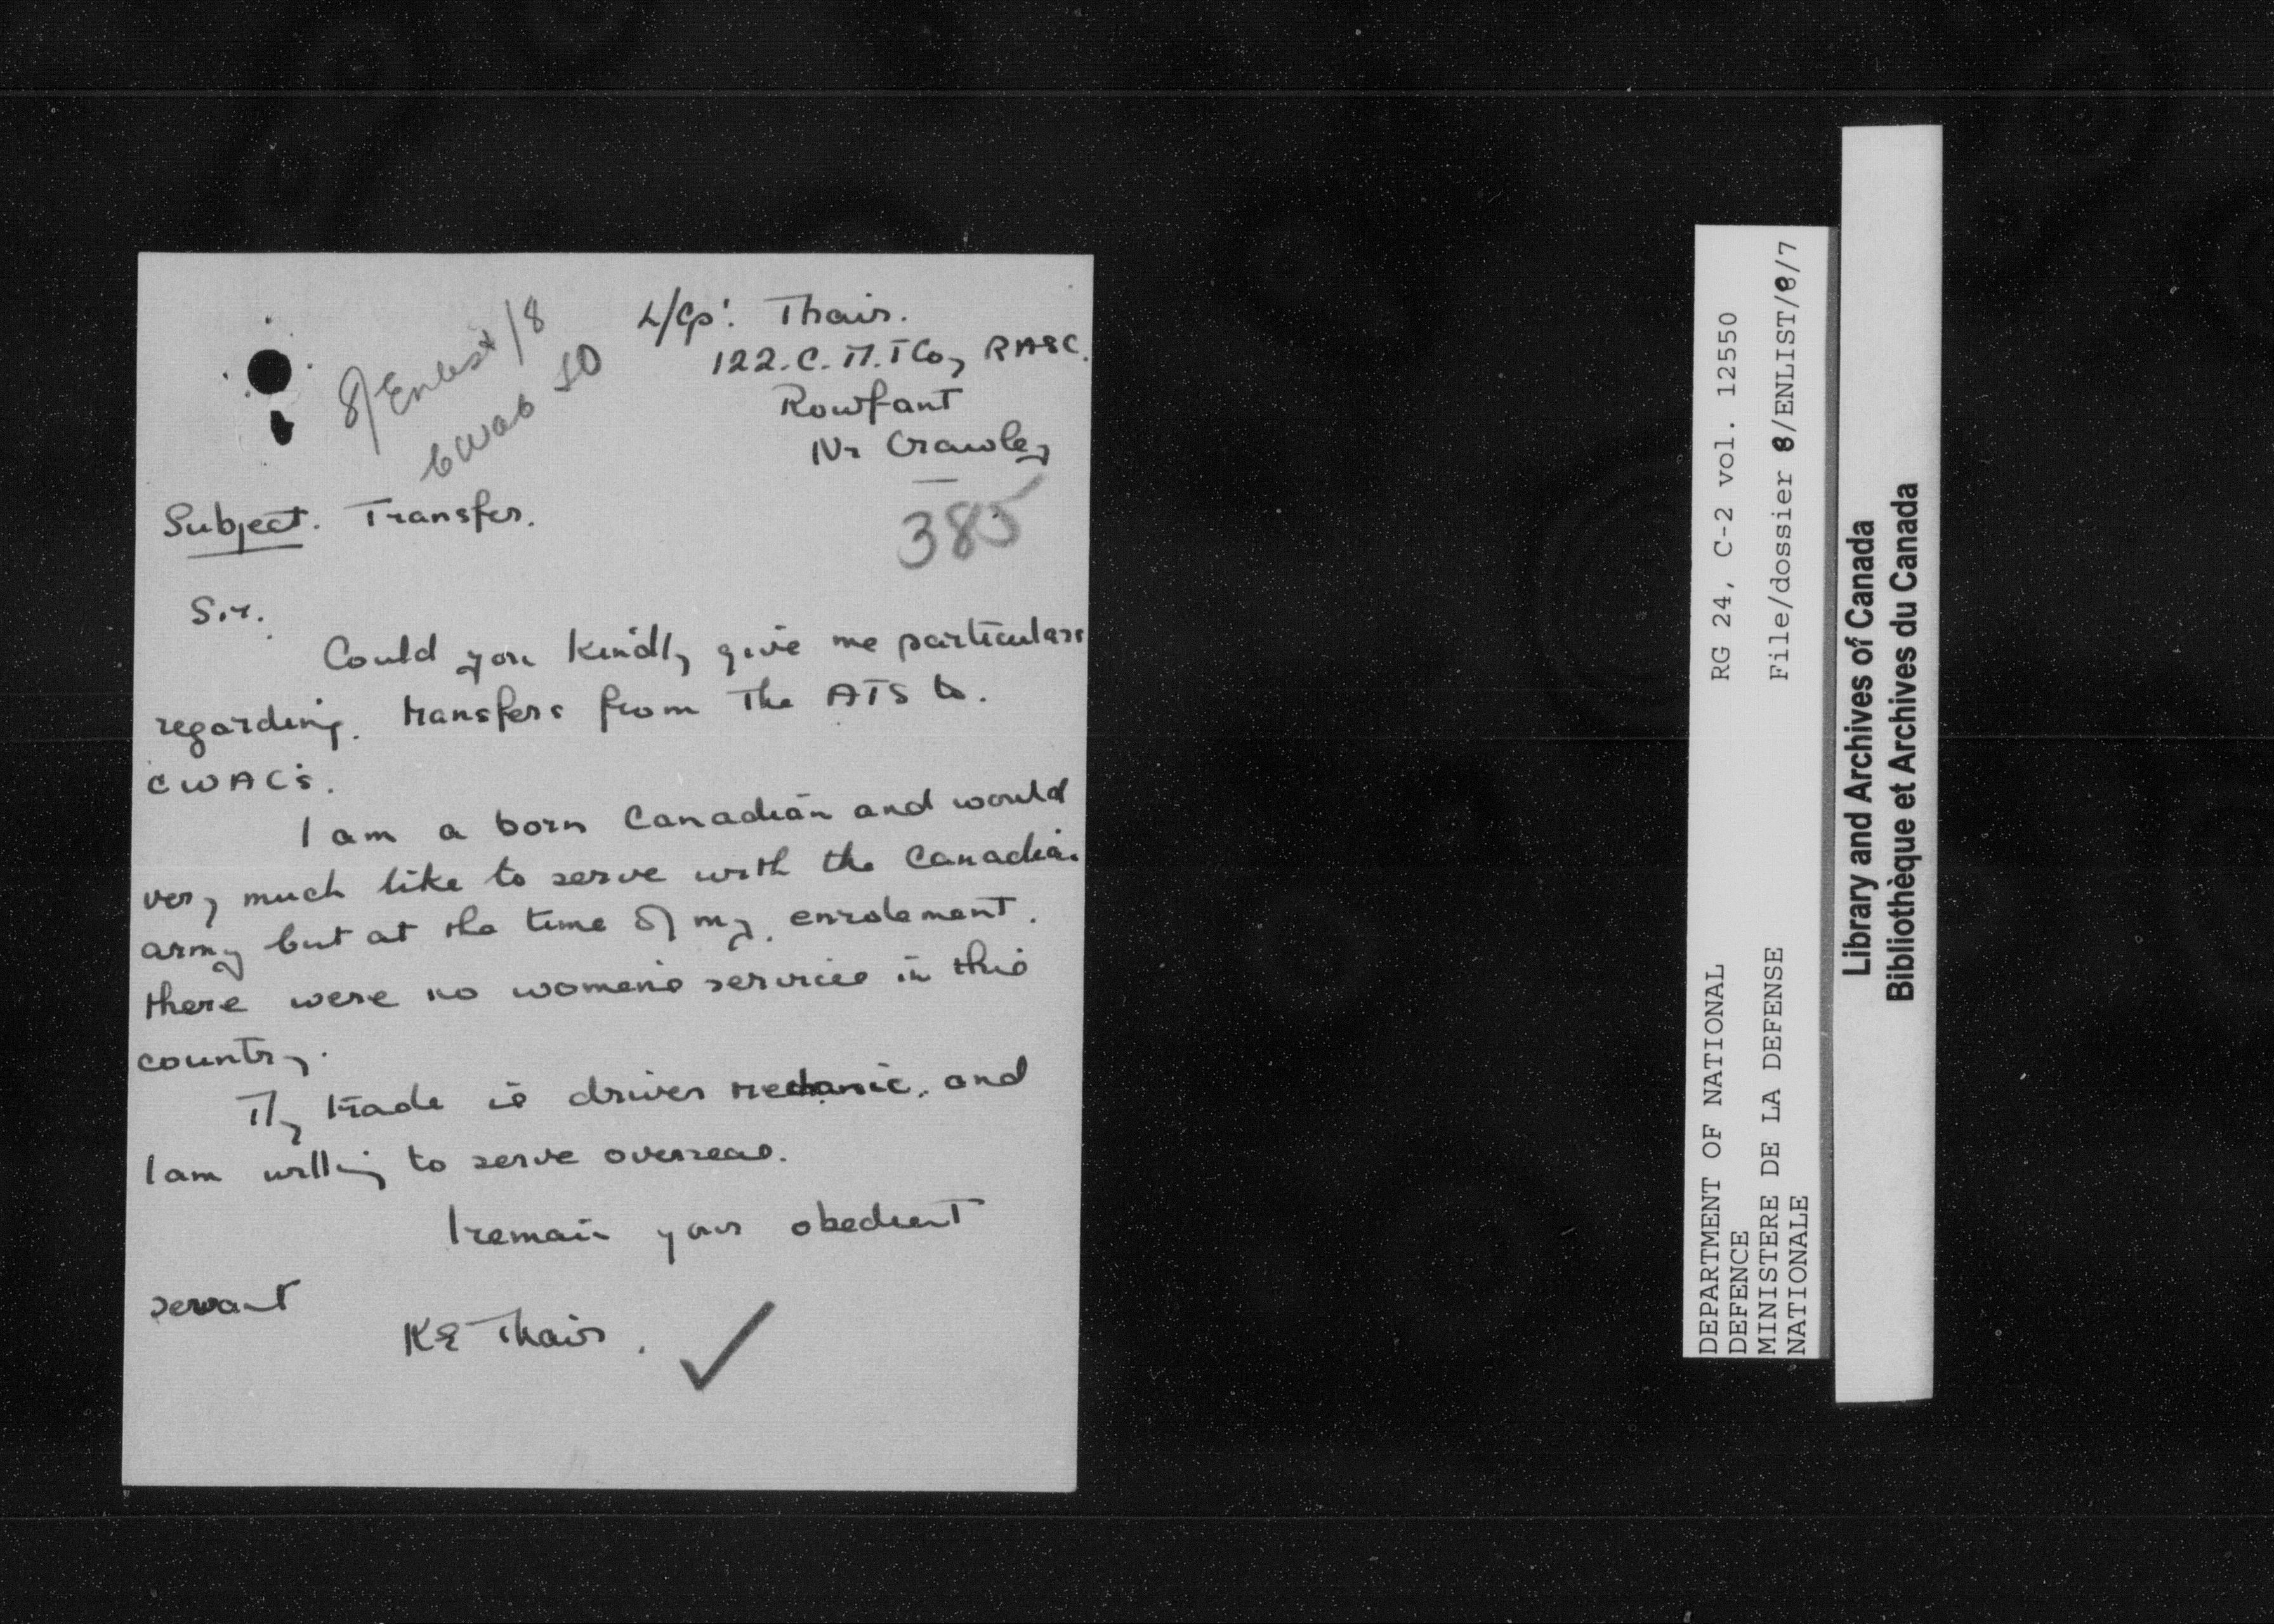 8/Enlist/8
CWAC SO
L/Cp'. Thair.
122. C. M. T Coy RASC.
Rowfant
Nr Crawley
385
Subject. Transfer.
Sir.
Could you kindly give me particulars
regarding. transfers from the ATS to.
CWAC's.
I am a born Canadian and would
very much like to serve with the Canadian
army but at the time of my. enrolement.
there were no women's services in this
country.
My trade is driver mechanic. and
I am willing to serve overseas.
I remain your obedient
servant
KE Thair.
DEPARTMENT OF NATIONAL
DEFENCE
MINISTERE DE LA DEFENSE
NATIONALE
RG 24, C-2 vol. 12550
File/dossier 8/ENLIST/8/7
Library and Archives of Canada
Bibliothèque et Archives du Canada